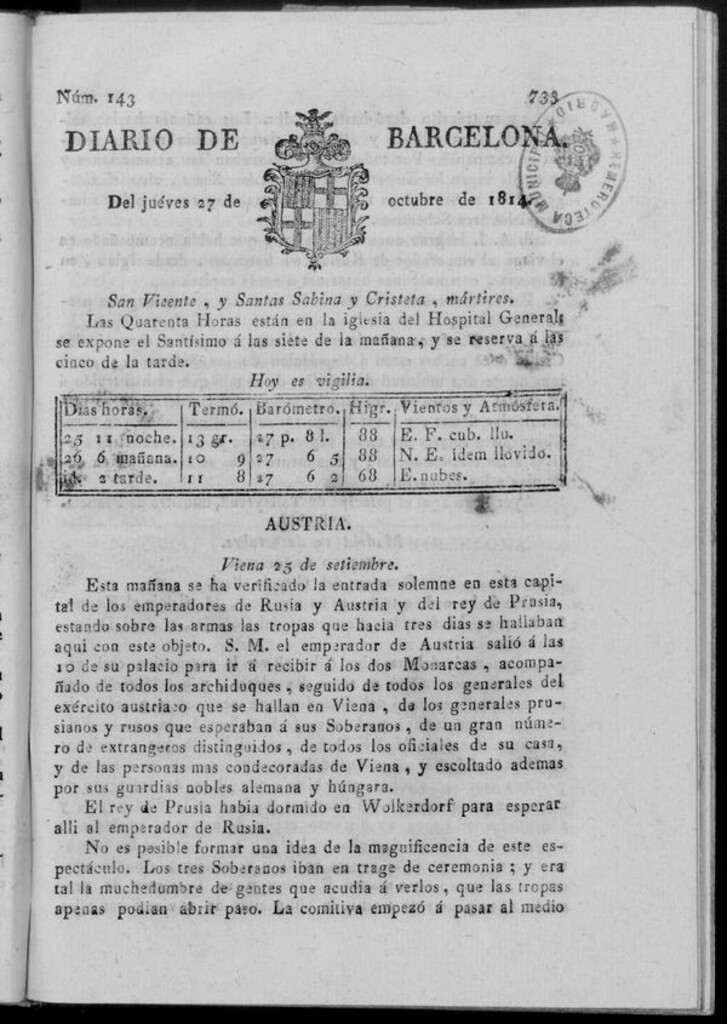 Núm. 143 733
DIARIO DE BARCELONA.
Del juéves 27 de octubre de 1814.
HEMEROTECA MUNICIPAL MADRID
San Vicente , y Santas Sabina y Cristeta , mártires.
Las Quarenta Horas están en la iglesia del Hospital General;
se expone el Santísimo á las siete de la mañana, y se reserva á las
cinco de la tarde.
Hoy es vigilia.
Dias horas. Termó. Barómetro. Higr. Vientos y Atmósfera.
25 11 noche. 13 gr. 27 p. 8 l. 88 E. F. cub. llu.
26 6 mañana. 10 9 27 6 5 88 N. E. idem llovido.
id. 2 tarde. 11 8 27 6 2 68 E. nubes.
AUSTRIA.
Viena 25 de setiembre.
Esta mañana se ha verificado la entrada solemne en esta capi-
tal de los emperadores de Rusia y Austria y del rey de Prusia,
estando sobre las armas las tropas que hacia tres dias se hallaban
aqui con este objeto. S. M. el emperador de Austria salió á las
10 de su palacio para ir á recibir á los dos Monarcas , acompa-
ñado de todos los archiduques , seguido de todos los generales del
exército austriaco que se hallan en Viena , de los generales pru-
sianos y rusos que esperaban á sus Soberanos , de un gran núme-
ro de extrangeros distinguidos , de todos los oficiales de su casa,
y de las personas mas condecoradas de Viena , y escoltado ademas
por sus guardias nobles alemana y húngara.
El rey de Prusia habia dormido en Wolkerdorf para esperar
alli al emperador de Rusia.
No es posible formar una idea de la magnificencia de este es-
pectáculo. Los tres Soberanos iban en trage de ceremonia ; y era
tal la muchedumbre de gentes que acudia á verlos , que las tropas
apenas podian abrir paso. La comitiva empezó á pasar al medio